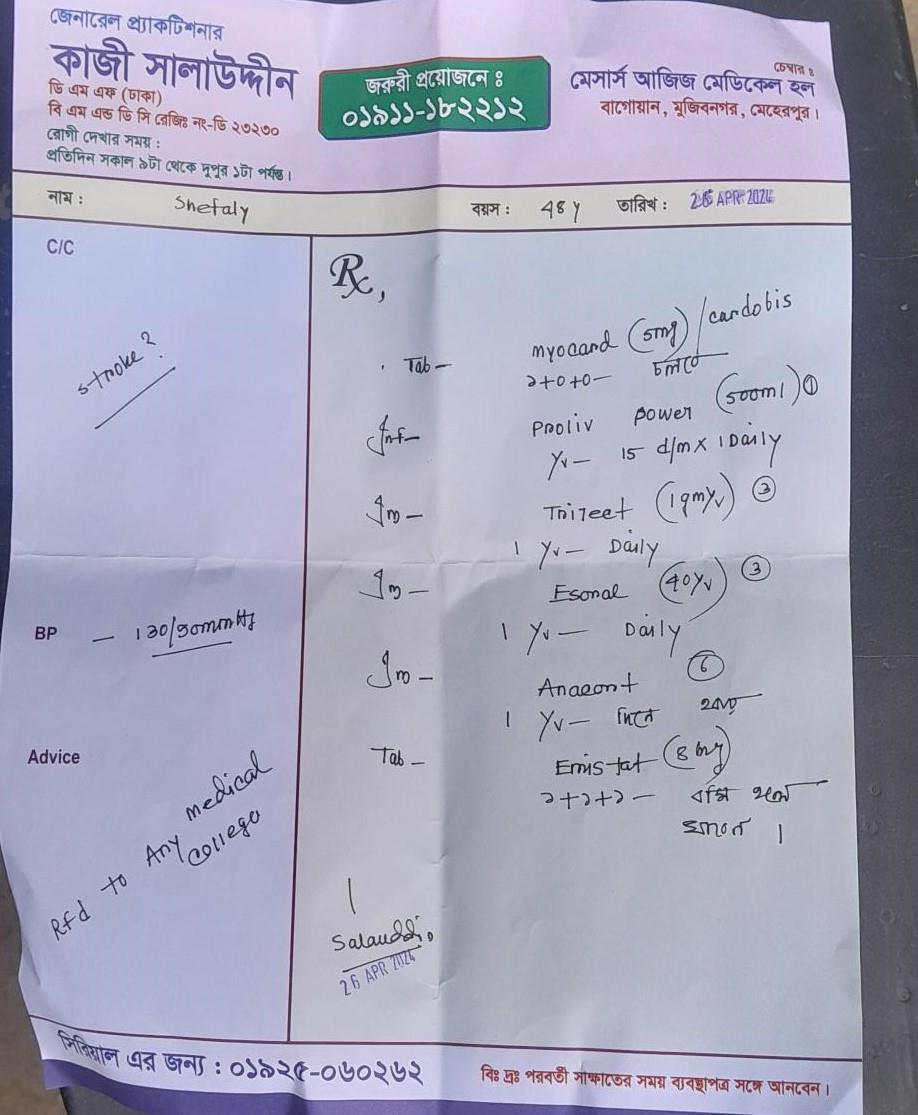 জেনারেল প্র্যাকটিশনার
কাজী সালাউদ্দীন
ডি এম এফ (ঢাকা)
বি এম এন্ড ডি সি রেজিঃ নং-ডি ২৩২৩০
রোগী দেখার সময় :
প্রতিদিন সকাল ৯টা থেকে দুপুর ১টা পর্যন্ত।
জরুরী প্রয়োজনে :
০১৯১১-১৮২২১২
চেম্বার :
মেসার্স আজিজ মেডিকেল হল
বাগোয়ান, মুজিবনগর, মেহেরপুর।
নাম : Shefaly বয়স : 48 y তারিখ : 26 APR 2024
C/C
stroke?
BP — 130/90mmHg
Advice
Rfd to Any medical
college
Rx,
Tab — myocard (5mg) / cardobis
১+০+০— চলবে
Inf— Proliv power (500ml) ①
IV— 15 d/m x 1 Daily
Inj — (1gm IV) ③
1 IV— Daily
Inj — Esonal (40 IV) ③
1 IV — Daily
Inj — ⑥
1 IV—
Tab — Emistat (8mg)
১+১+১— বমি হলে
খাবেন ।
Salauddin
26 APR 2024
সিরিয়াল এর জন্য : ০১৯২৫-০৬০২৬২
বিঃ দ্রঃ পরবর্তী সাক্ষাতের সময় ব্যবস্থাপত্র সঙ্গে আনবেন।